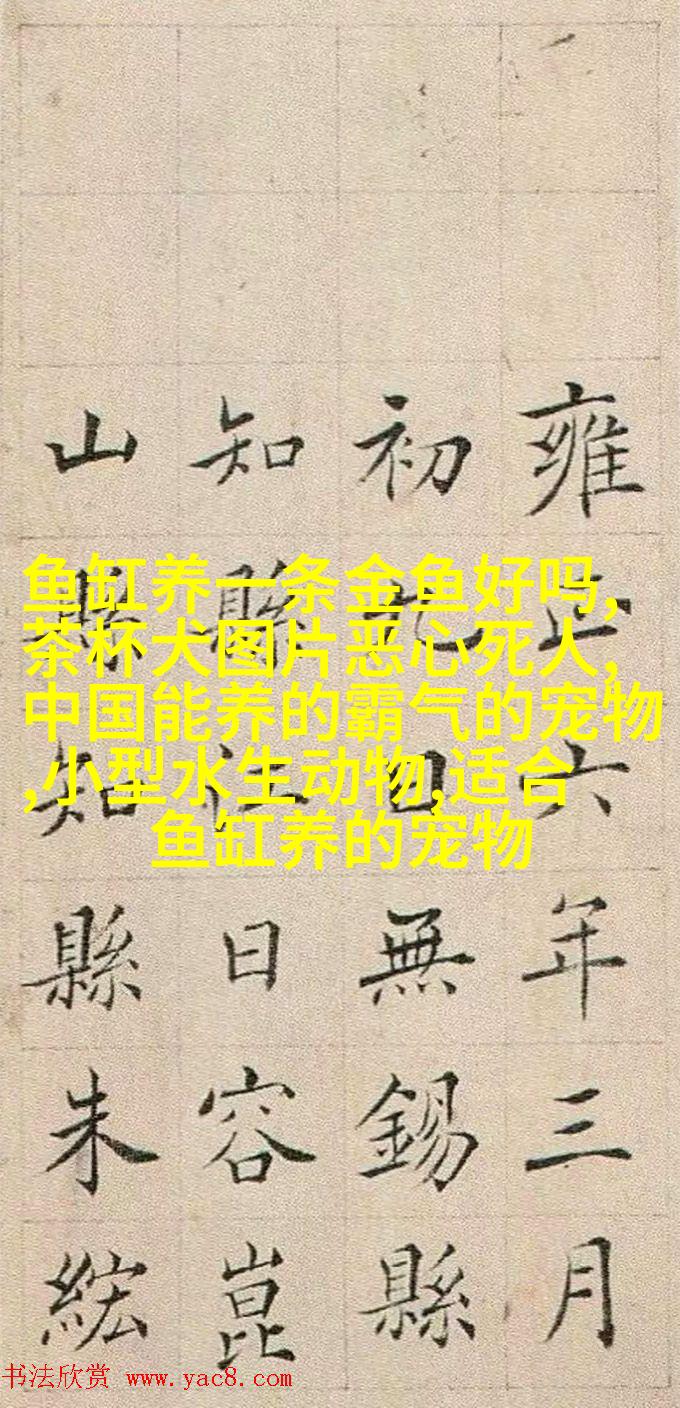 鱼缸养一条金鱼好吗,
茶杯犬图片恶心死人,
中国能养的霸气的宠物
,小型水生动物,适合
鱼缸养的宠物
雍正六年三月
初日無錫縣
知縣江日容崑
山縣知縣朱綋
书法欣赏 www.yac8.com